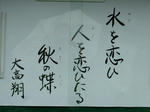 水を恋ひ
人を恋ひたる
秋の蝶
大高翔